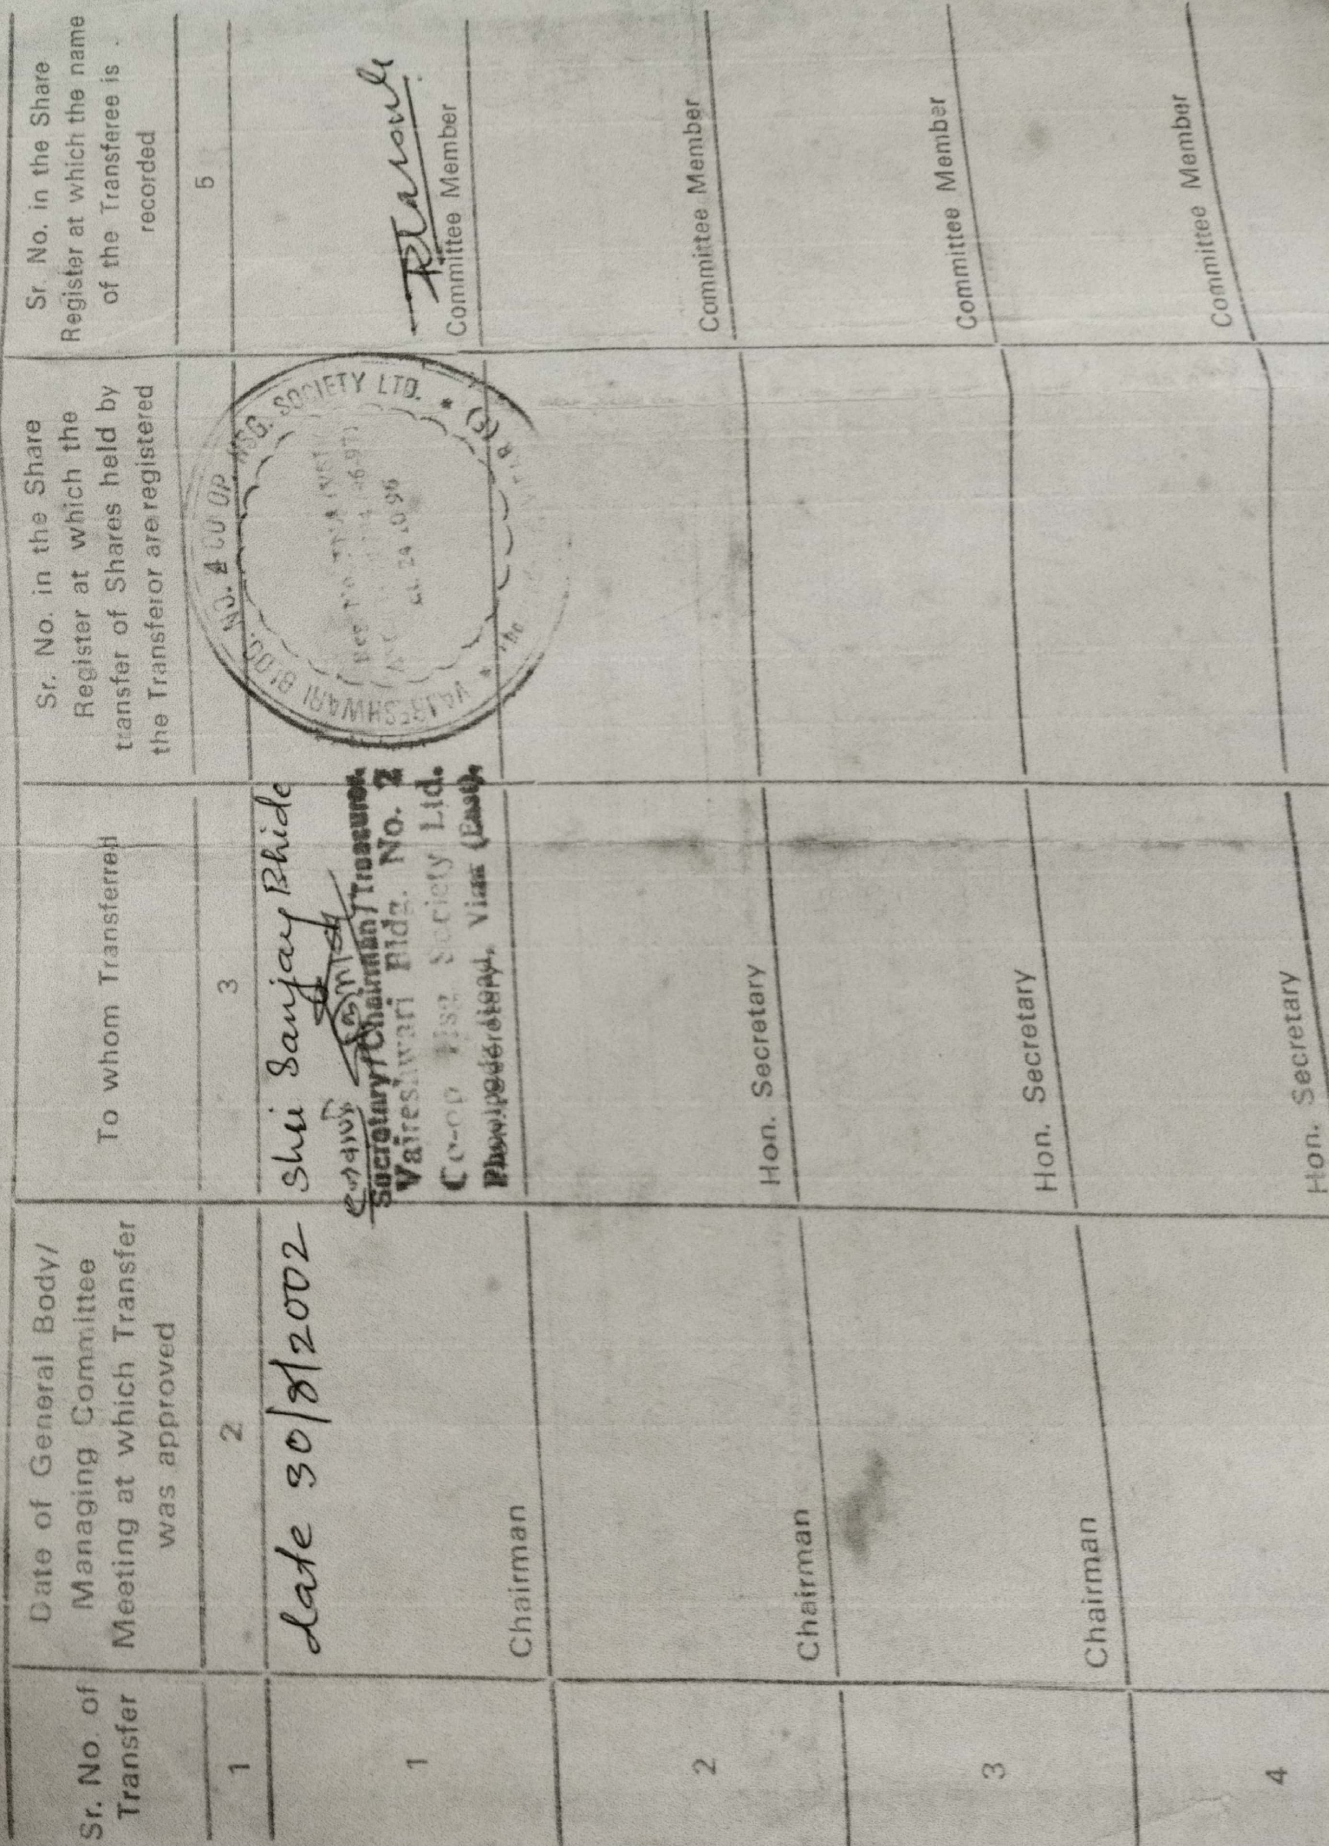 Sr. No. of
Transfer
Date of General Body/
Managing Committee
Meeting at which Transfer
was approved
To whom Transferred
Sr. No. in the Share
Register at which the
transfer of Shares held by
the Transferor are registered
Sr. No. in the Share
Register at which the name
of the Transferee is .
recorded
1
2
3
5
1
date 30/8/2002
Shri Sanjay Bhide
Secretary/Chairman/Treasurer
Vajreshwari Bldg. No. 2
Co-op Hsg. Society Ltd.
Virar (East).
VAJRESHWARI BLDG. NO. 2 CO OP. HSG. SOCIETY LTD. *
24 10 96
Chairman
Committee Member
2
Chairman
Hon. Secretary
Committee Member
3
Chairman
Hon. Secretary
Committee Member
4
Hon. Secretary
Committee Member